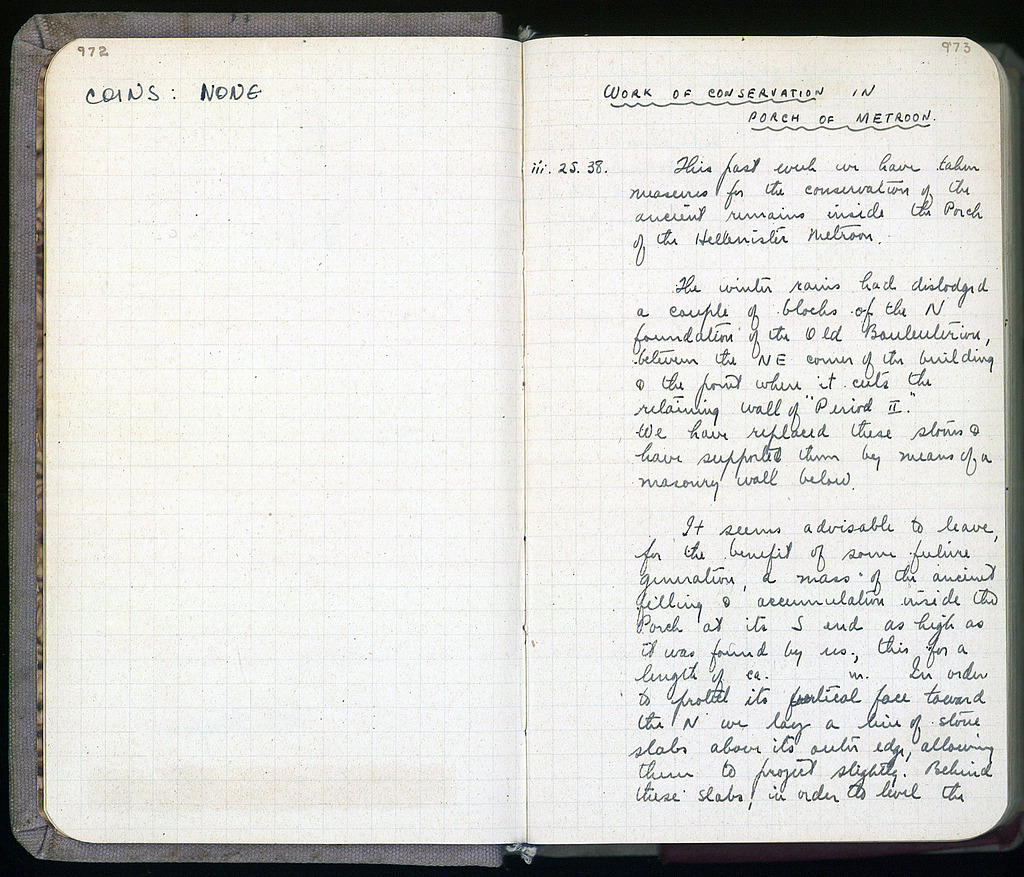 972
COINS: NONE
973
WORK OF CONSERVATION IN
PORCH OF METROON.
iii. 25. 38.
This past week we have taken
measures for the conservation of the
ancient remains inside the Porch
of the Hellenistic Metroon.
The winter rains had dislodged
a couple of blocks of the N
foundation of the Old Bouleuterion,
between the NE corner of the building
& the point where it cuts the
retaining wall of "Period II."
We have replaced these stones &
have supported them by means of a
masonry wall below.
It seems advisable to leave,
for the benefit of some future
generation, a mass of the ancient
filling & accumulation inside the
Porch at its S end as high as
it was found by us, this for a
length of ca. m. In order
to protect its vertical face toward
the N we lay a line of stone
slabs above its outer edge, allowing
them to project slightly. Behind
these slabs, in order to level the